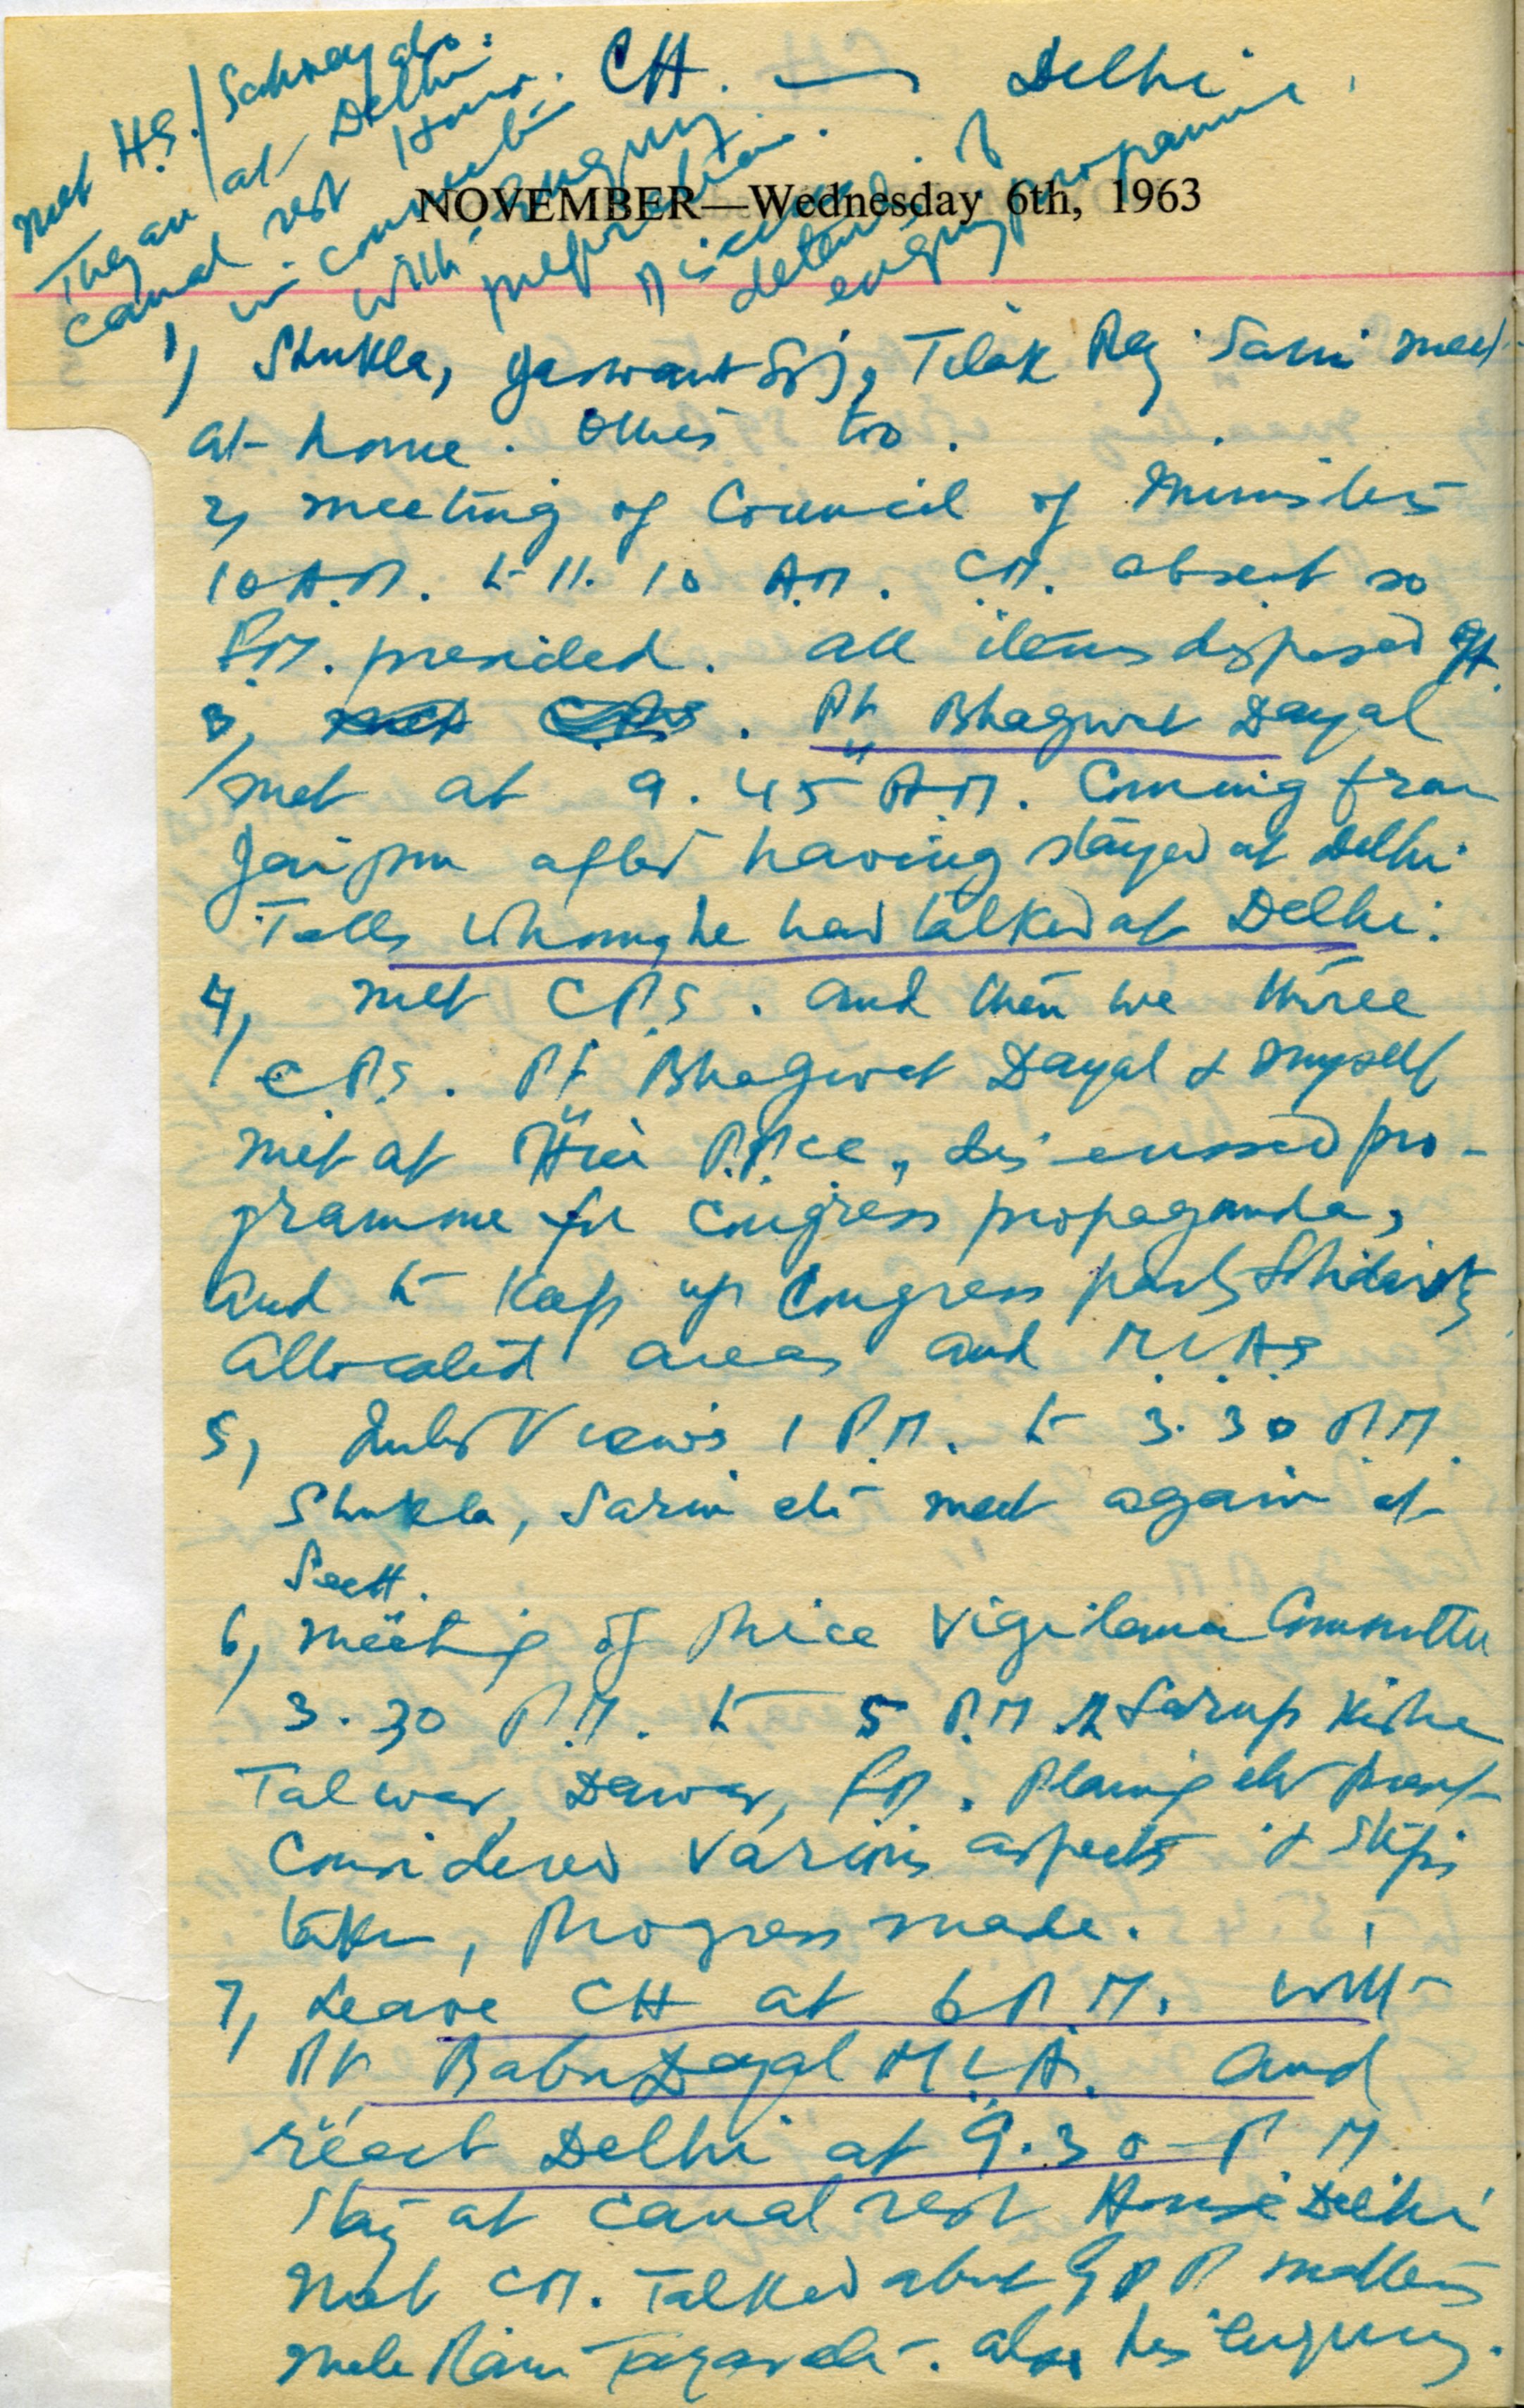 CH. — Delhi
met H.S./
They are at Delhi
canal rest House.
in connection
with enquiry
preparation.
Discussed
detailed
enquiry programme
NOVEMBER—Wednesday 6th, 1963
1, Shukla, Jaswant Sgj, Tilak Raj Sarin meet
at home. Others too.
2, meeting of Council of Ministers
10 A.M. to 11.10 A.M. CM. absent so
F.M. presided. all items disposed off.
3, Pt. Bhagwat Dayal
met at 9.45 A.M. Coming from
Jaipur after having stayed at Delhi
Tells whom he had talked at Delhi.
4, met C.P.S. and then we three
C.P.S. Pt. Bhagwat Dayal & myself
met at P.P.CC, discussed pro-
gramme for Congress propaganda,
and to keep up Congress party Solidarity
allocated areas and M.L.As
5, Interviews 1 P.M. to 3.30 P.M.
Shukla, Sarin etc meet again at
Sectt.
6, meeting of Price Vigilance Committee
3.30 P.M. to 5 P.M. Sarup Kishen
Talwar, Dewar, FM. Planing etc present
Considered various aspects & steps
taken, Progress made.
7, Leave CH at 6 P.M. with
Pt. Babu Dayal M.L.A. and
reach Delhi at 9.30 P.M
Stay at canal rest House Delhi
Met CM. Talked about matters
Mela Ram also his enquiry.